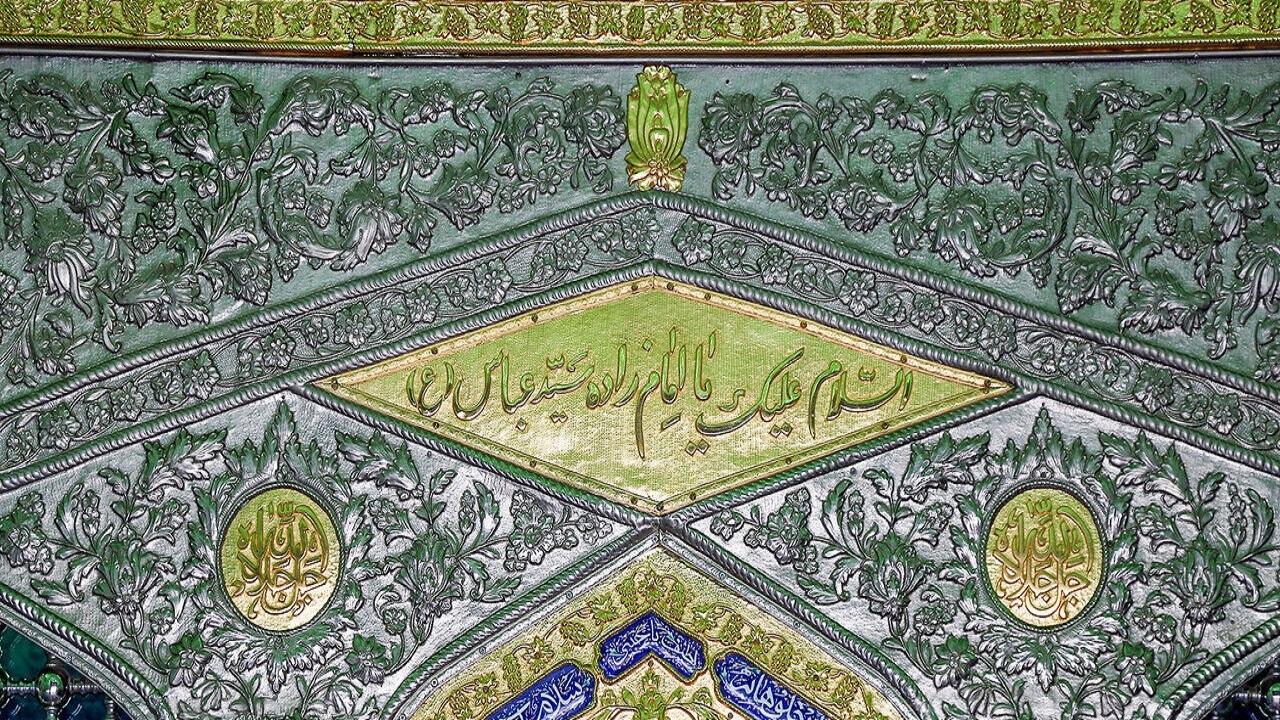 السّلام علیک یا امامزاده سیّد عباس (ع)
الله جل جلاله
الله جل جلاله